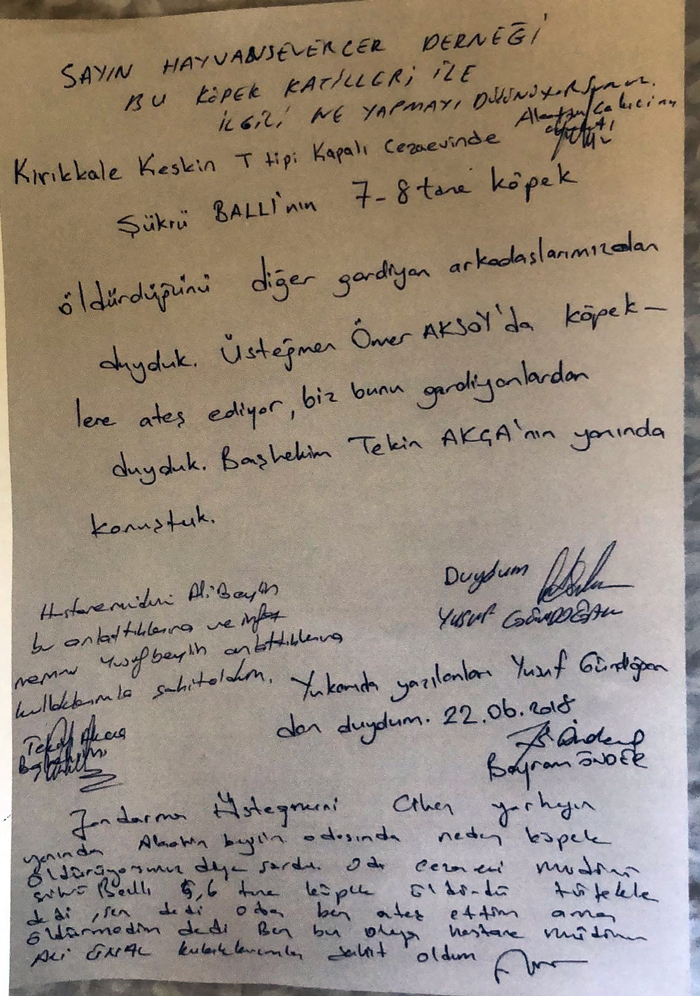 SAYIN HAYVANSEVERLER DERNEĞİ
BU KÖPEK KATİLLERİ İLE
İLGİLİ NE YAPMAYI DÜŞÜNÜYORSUNUZ.
Kırıkkale Keskin T tipi Kapalı Cezaevinde
Şükrü BALLI'nın 7-8 tane köpek
öldürdüğünü diğer gardiyan arkadaşlarımızdan
duyduk. Üsteğmen Ömer AKSOY'da köpek-
lere ateş ediyor, biz bunu gardiyanlardan
duyduk. Başhekim Tekin AKÇA'nın yanında
konuştuk.
Duydum
YUSUF GÜNDOĞAN
Hastane müdürü Ali Beyin
bu anlattıklarına ve infaz
memuru Yusuf beyin anlattıklarına
kulaklarımla şahit oldum.
Tekin Akça
Yukarıda yazılanları Yusuf Gündoğan
dan duydum. 22.06.2018
Bayram ÖNDER
Jandarma Üsteğmeni Cihan
yanında beyin odasında neden köpek
öldürüyorsunuz diye sordu. O da cezaevi müdürü
Şükrü Ballı 5,6 tane köpek öldürdü tüfekle
dedi, sen dedi oda ben ateş ettim ama
öldürmedim dedi Ben bu olaya hastane müdürü
Ali ÜNAL kulaklarımla şahit oldum